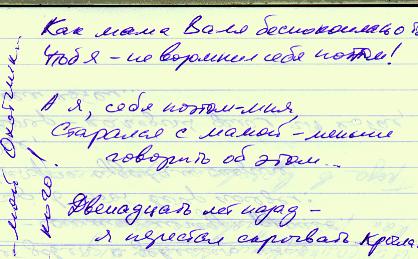 Как мама Валя беспокоилась о
Чтоб я - не возомнил себя поэтом!
А я, себя поэтом-мня,
Старался с мамой - меньше
говорить об этом...
Двенадцать лет назад -
я перестал скрывать